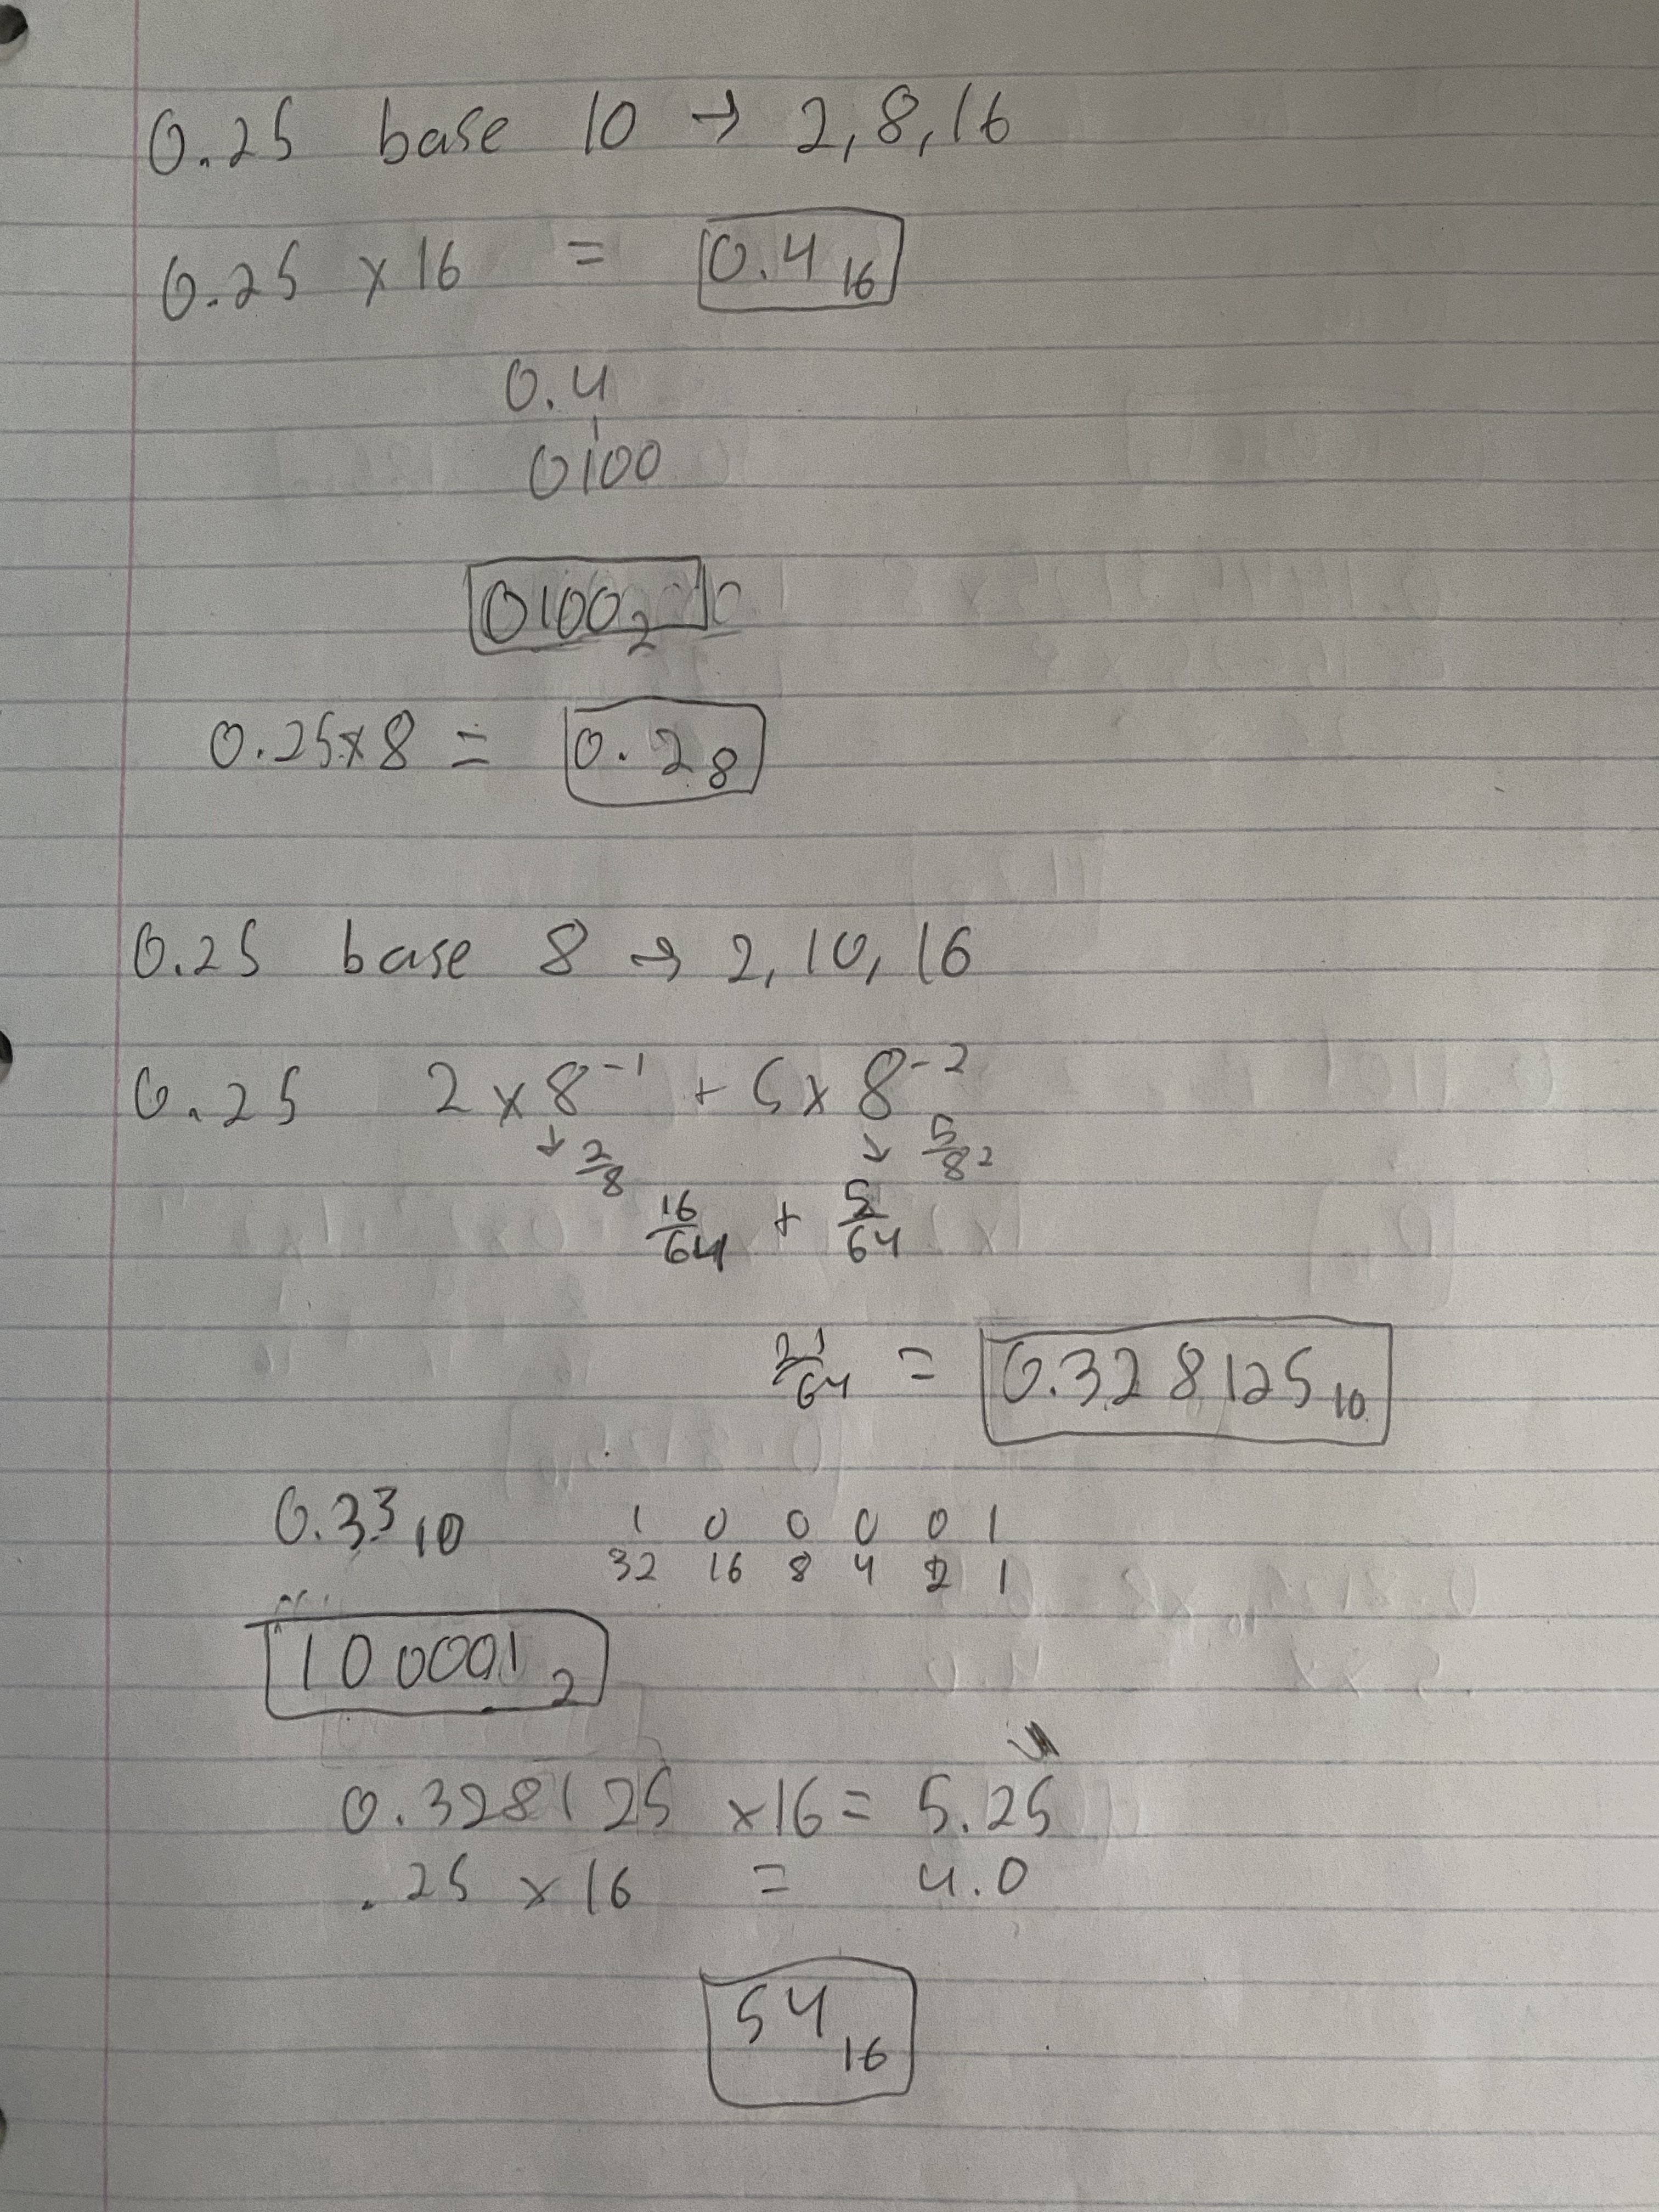 0.25 base 10 → 2,8,16
0.25 x 16 = 0.4 16
0.4
0100
0100 2
0.25x8 = 0.2 8
0.25 base 8 → 2,10,16
0.25 2 x 8⁻¹ + 5 x 8⁻²
↓ 2/8 ↓ 5/8²
16/64 + 5/64
21/64 = 0.328125 10
0.33 10 1 0 0 0 0 1
32 16 8 4 2 1
100001 2
0.328125 x16 = 5.25
.25 x 16 = 4.0
54 16